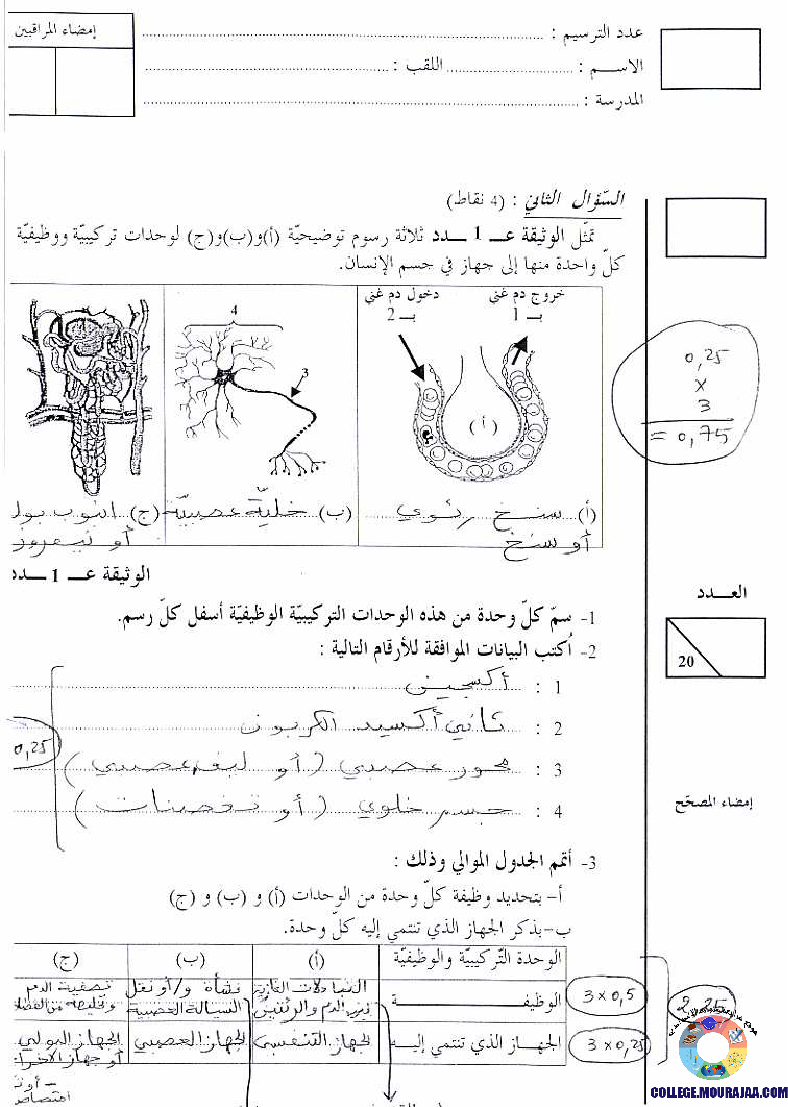 عدد الترسيم :
إمضاء المراقبين
الاسـم : اللقب :
المدرسة :
السّؤال الثّاني : (4 نقاط)
تمثّل الوثيقة عـ 1 ـدد ثلاثة رسوم توضيحيّة (أ)و(ب)و(ج) لوحدات تركيبيّة ووظيفيّة
كلّ واحدة منها إلى جهاز في جسم الإنسان.
خروج دم غني
بـ 1
دخول دم غني
بـ 2
(أ)
4
3
0,25
x
3
= 0,75
(أ) سنخ رئوي
أو سنخ
(ب) خليّة عصبيّة
(ج) انبوب بول
أو نيفرون
الوثيقة عـ 1 ـدد
العـدد
20
1- سمّ كلّ وحدة من هذه الوحدات التركيبيّة الوظيفيّة أسفل كلّ رسم.
2- اُكتب البيانات الموافقة للأرقام التالية :
1 : أكسجين
2 : ثاني أكسيد الكربون
3 : محور عصبي (أو ليف عصبي)
4 : جسم خلوي (أو تغصنات)
0,25
إمضاء المصحّح
3- أتمّ الجدول الموالي وذلك :
أ- بتحديد وظيفة كلّ وحدة من الوحدات (أ) و (ب) و (ج)
ب-بذكر الجهاز الذي تنتمي إليه كلّ وحدة.
الوحدة التّركيبيّة والوظيفيّة (أ) (ب) (ج)
الوظيفـة
التبادلات الغازية
بين الدم والرئتين
نشأة و/أو نقل
السيالة العصبية
تصفية الدم
وتخليصه من الفضلا
3 x 0,5
2,25
الجهـاز الذي تنتمي إليـه
الجهاز التنفسي
الجهاز العصبي
الجهاز البولي
أو جهاز الاخراج
3 x 0,25
COLLEGE.MOURAJAA.COM